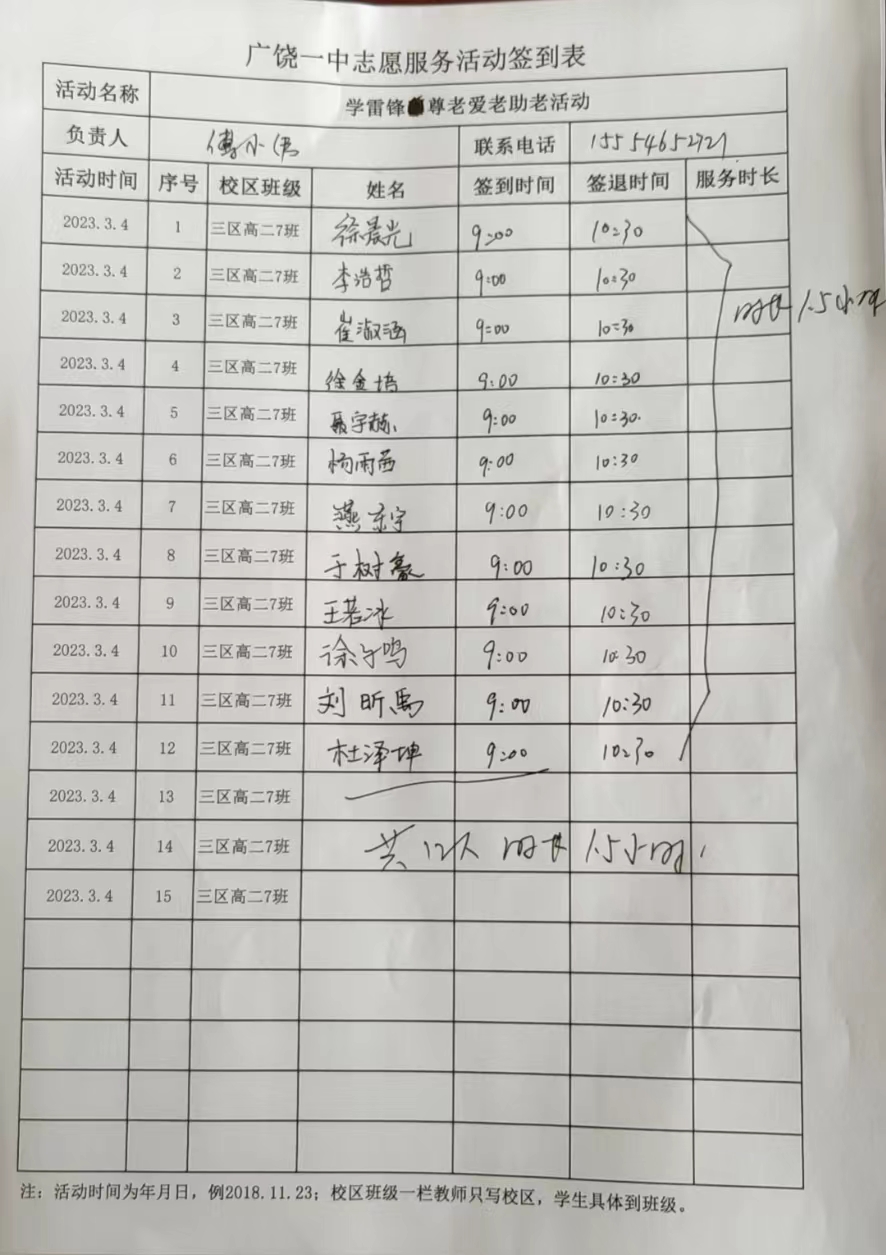 广饶一中志愿服务活动签到表
活动名称 学雷锋 尊老爱老助老活动
负责人 傅小伟 联系电话 15554652721
活动时间 序号 校区班级 姓名 签到时间 签退时间 服务时长
2023.3.4 1 三区高二7班 徐晨光 9:00 10:30
2023.3.4 2 三区高二7班 李浩哲 9:00 10:30
2023.3.4 3 三区高二7班 崔淑涵 9:00 10:30
时长 1.5小时
2023.3.4 4 三区高二7班 徐金培 9:00 10:30
2023.3.4 5 三区高二7班 聂宇赫 9:00 10:30
2023.3.4 6 三区高二7班 杨雨茜 9:00 10:30
2023.3.4 7 三区高二7班 燕京宇 9:00 10:30
2023.3.4 8 三区高二7班 于树豪 9:00 10:30
2023.3.4 9 三区高二7班 王若冰 9:00 10:30
2023.3.4 10 三区高二7班 9:00 10:30
2023.3.4 11 三区高二7班 刘昕禹 9:00 10:30
2023.3.4 12 三区高二7班 杜泽坤 9:00 10:30
2023.3.4 13 三区高二7班
2023.3.4 14 三区高二7班 共12人 时长 1.5小时
2023.3.4 15 三区高二7班
注：活动时间为年月日，例2018.11.23；校区班级一栏教师只写校区，学生具体到班级。